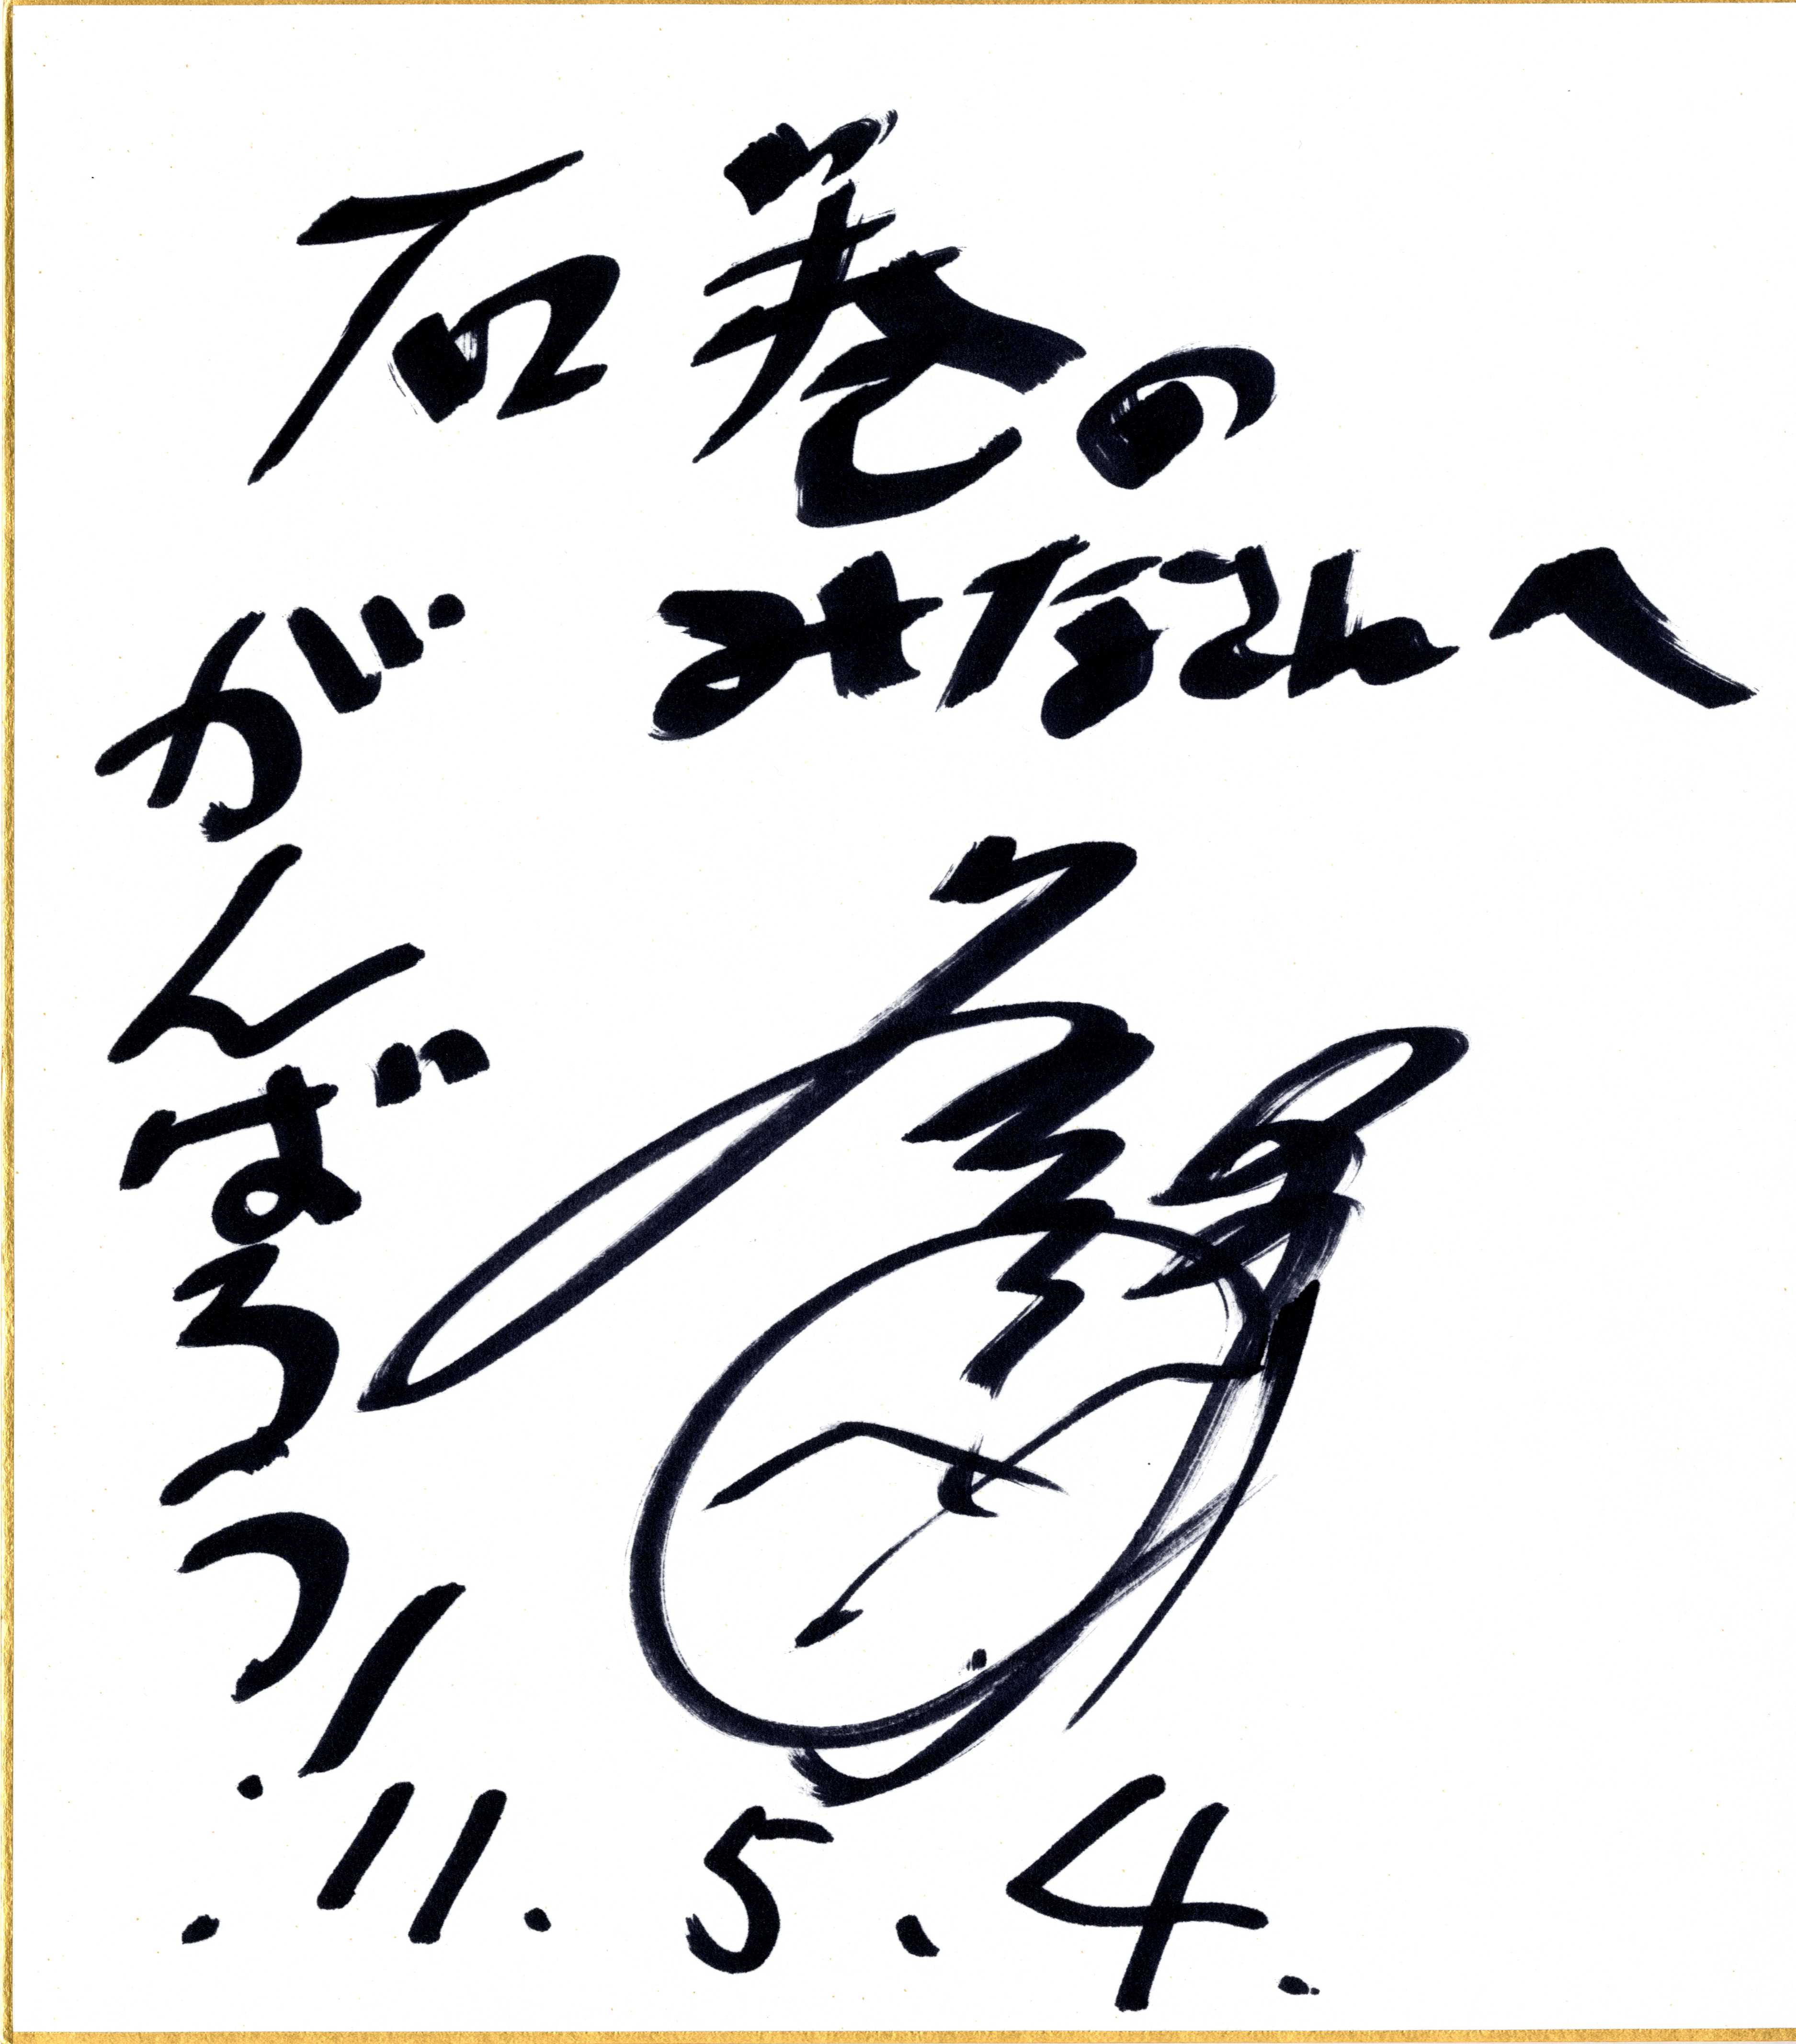 石巻の
みなさんへ
がんばろう!
.11.5.4.